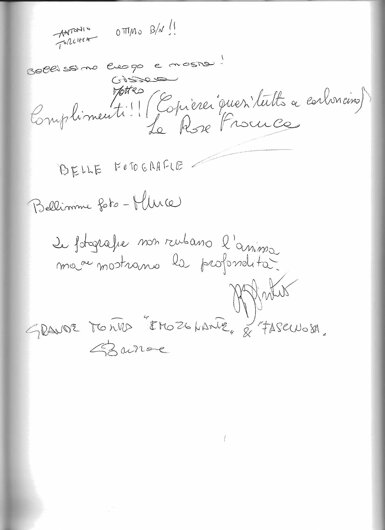 ANTONIO OTTIMO B/N!!
bellissimo luogo e mostra!
Complimenti!! (Copierei quasi tutto a carboncino)
La Rosa Franca
BELLE FOTOGRAFIE
Bellissime foto -
Le fotografie non rubano l'anima
ma ne mostrano la profondità.
GRANDE MOSTRA "EMOZIONANTE" & "FASCINOSA".